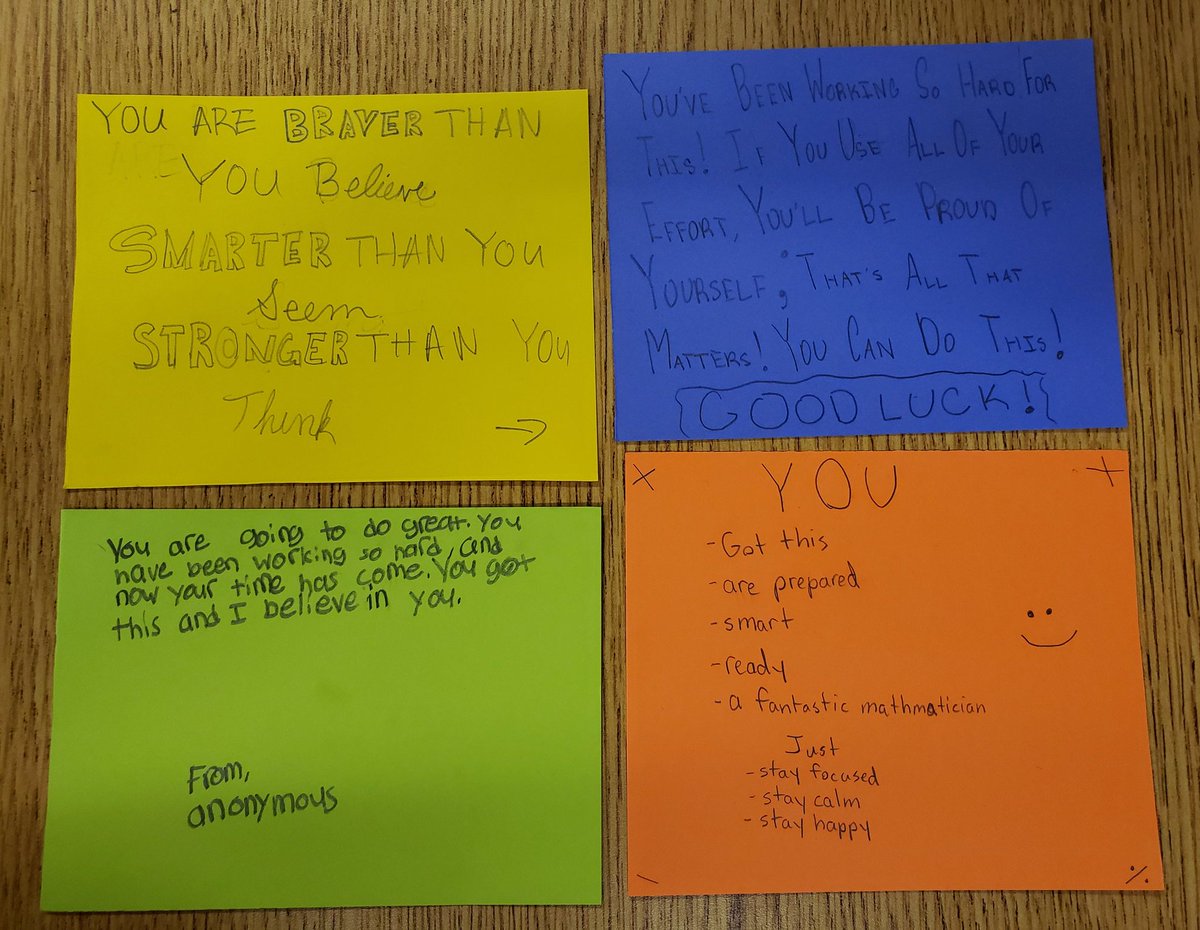 YOU ARE BRAVER THAN
YOU Believe
SMARTER THAN YOU
Seem
STRONGER THAN YOU
Think
→
YOU'VE BEEN WORKING SO HARD FOR
THIS! IF YOU USE ALL OF YOUR
EFFORT, YOU'LL BE PROUD OF
YOURSELF; THAT'S ALL THAT
MATTERS! YOU CAN DO THIS!
{GOOD LUCK!}
You are going to do great. You
have been working so hard, and
now your time has come. You got
this and I believe in you.
From,
anonymous
× YOU +
-Got this
-are prepared
-smart
-ready
-a fantastic mathmatician
Just
-stay focused
-stay calm
-stay happy
- ÷